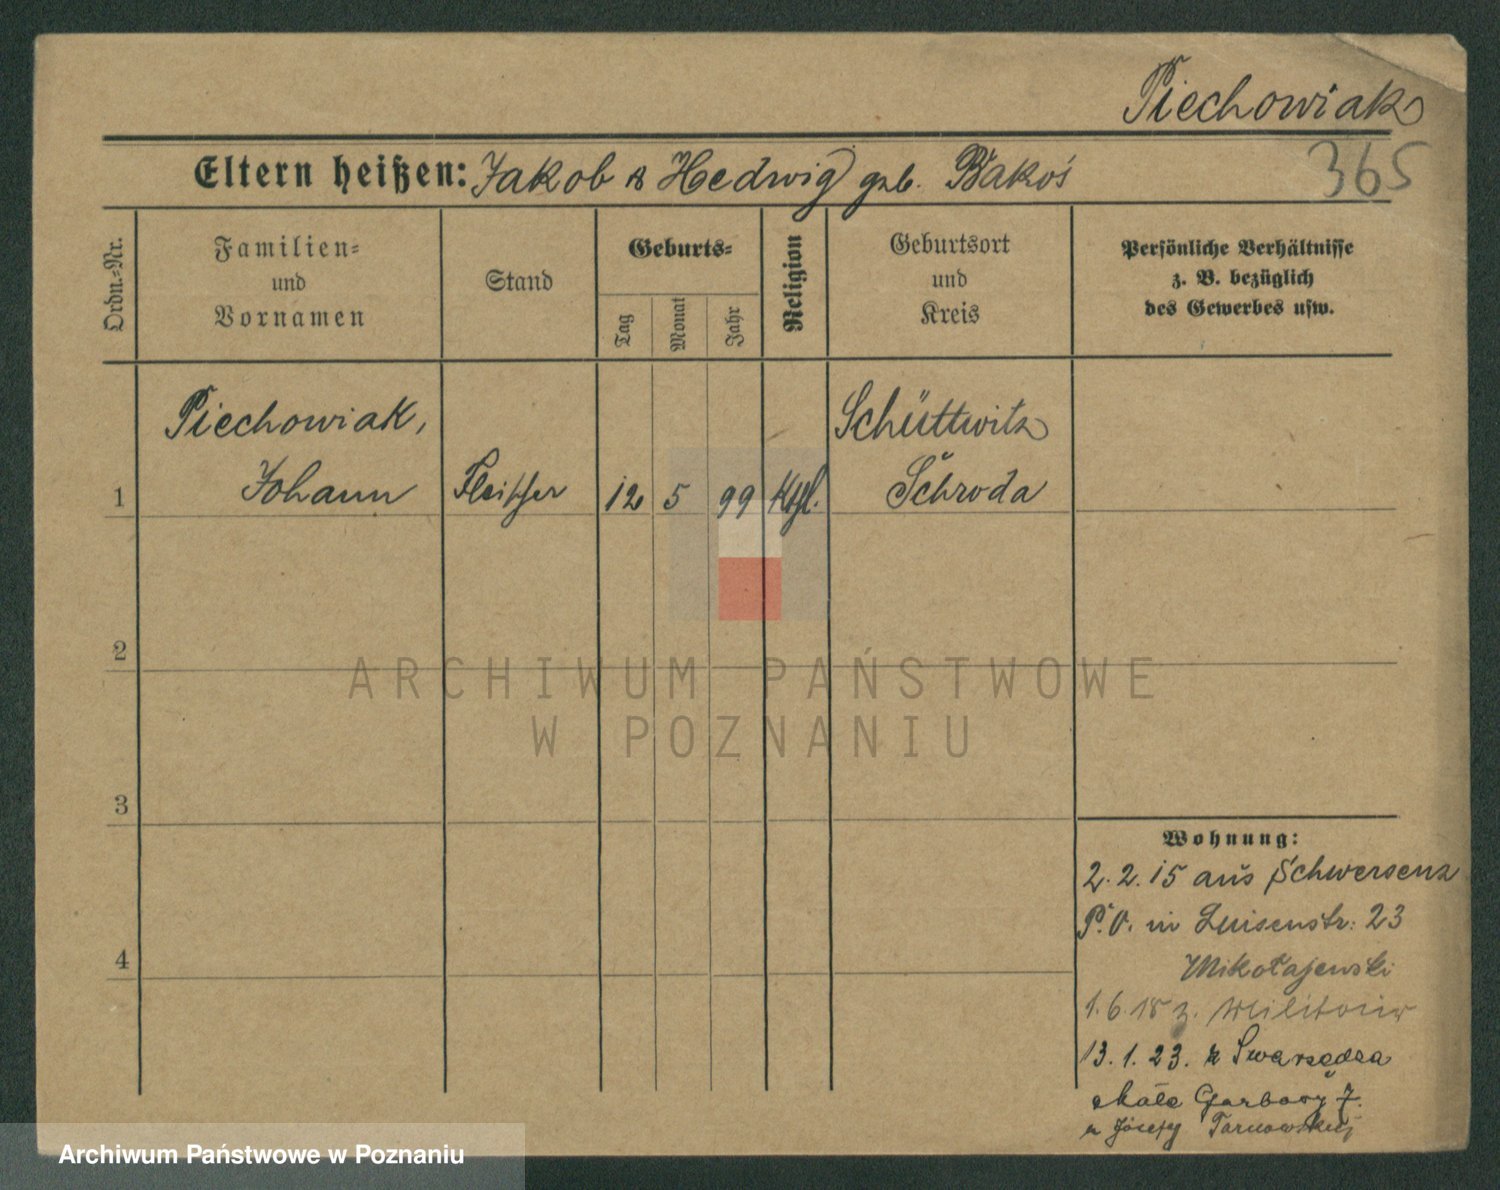 Piechowiak
365
Eltern heißen: Jakob & Hedwig geb. Bakoś
Ordn.-Nr.
Familien-
und
Vornamen
Stand
Geburts-
Tag
Monat
Jahr
Religion
Geburtsort
und
Kreis
Persönliche Verhältnisse
z. B. bezüglich
des Gewerbes usw.
Piechowiak,
Schüttwitz
1 Johann Fleischer 12 5 99 Kthl. Schroda
2
3
4
ARCHIWUM PAŃSTWOWE
W POZNANIU
Wohnung:
2. 2. 15 aus Schwersenz
P. O. in Luisenstr. 23
Mikołajewski
1. 6. 18 z. Militär
13. 1. 23. z Swarzędza
Małe Garbary 7.
u Józefy Tarnowskiej
Archiwum Państwowe w Poznaniu